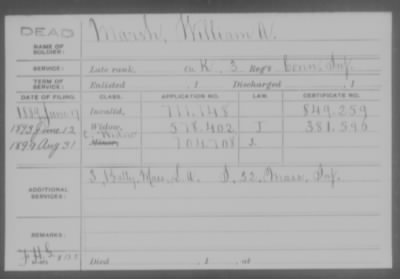 DEAD
Marsh, William A.
NAME OF SOLDIER:
SERVICE: Late rank, Co. K, 3 Reg't Conn. Inf.
TERM OF SERVICE: Enlisted , 1 Discharged , 1
DATE OF FILING. CLASS. APPLICATION NO. LAW. CERTIFICATE NO.
1889 June Invalid, 711.748 849.259
1893 June 12 Widow, 578.402 J 381.596
1899 Aug 31 C. Widow Minor, 704.708
ADDITIONAL SERVICES: 3 Batty. Mass. L A. D. 32 Mass. Inf.
REMARKS:
Died , 1 , at